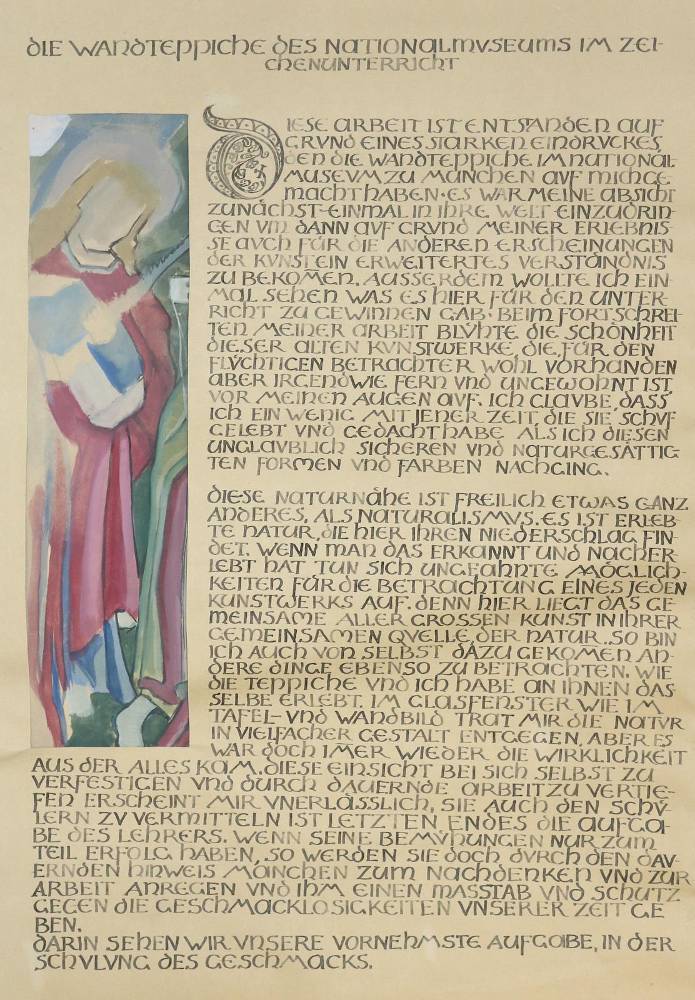 DIE WANDTEPPICHE DES NATIONALMVSEUMS IM ZEI-
CHENUNTERRICHT
DIESE ARBEIT IST ENTSTANDEN AUF
GRVND EINES STARKEN EINDRVCKES,
DEN DIE WANDTEPPICHE IM NATIONAL-
MUSEVM ZU MÜNCHEN AVF MICH GE-
MACHT HABEN. ES WAR MEINE ABSICHT
ZUNÄCHST EINMAL IN IHRE WELT EINZUDRIN-
GEN VM DANN AVF GRVND MEINER ERLEBNIS-
SE AVCH FÜR DIE ANDEREN ERSCHEINUNGEN
DER KVNST EIN ERWEITERTES VERSTÄNDNIS
ZU BEKOMEN. AUSSERDEM WOLLTE ICH EIN-
MAL SEHEN WAS ES HIER FÜR DEN UNTER-
RICHT ZU GEWINNEN GAB. BEIM FORTSCHREI-
TEN MEINER ARBEIT BLÜHTE DIE SCHÖNHEIT
DIESER ALTEN KVNSTWERKE, DIE FÜR DEN
FLÜCHTIGEN BETRACHTER WOHL VORHANDEN
ABER IRGENDWIE FERN VND UNGEWOHNT IST,
VOR MEINEN AUGEN AVF. ICH GLAVBE, DASS
ICH EIN WENIG MIT JENER ZEIT, DIE SIE SCHVF
GELEBT VND GEDACHT HABE ALS ICH DIESEN
UNGLAVBLICH SICHEREN VND NATURGESÄTTIG-
TEN FORMEN VND FARBEN NACHGING.
DIESE NATURNÄHE IST FREILICH ETWAS GANZ
ANDERES, ALS NATURALISMVS. ES IST ERLEB-
TE NATUR, DIE HIER IHREN NIEDERSCHLAG FIN-
DET. WENN MAN DAS ERKANNT UND NACHER-
LEBT HAT TUN SICH UNGEAHNTE MÖGLICH-
KEITEN FÜR DIE BETRACHTUNG EINES JEDEN
KUNSTWERKS AUF. DENN HIER LIEGT DAS GE-
MEINSAME ALLER GROSSEN KUNST IN IHRER
GEMEINSAMEN QVELLE, DER NATUR. SO BIN
ICH AUCH VON SELBST DAZU GEKOMEN AN-
DERE DINGE EBENSO ZU BETRACHTEN, WIE
DIE TEPPICHE VND ICH HABE AN IHNEN DAS
SELBE ERLEBT. IM GLASFENSTER WIE IM
TAFEL- VND WANDBILD TRAT MIR DIE NATVR
IN VIELFACHER GESTALT ENTGEGEN, ABER ES
WAR DOCH IMER WIEDER DIE WIRKLICHKEIT
AUS DER ALLES KAM. DIESE EINSICHT BEI SICH SELBST ZU
VERFESTIGEN VND DURCH DAUERNDE ARBEIT ZU VERTIE-
FEN ERSCHEINT MIR VNERLÄSSLICH, SIE AUCH DEN SCHÜ-
LERN ZV VERMITTELN IST LETZTEN ENDES DIE AUFGA-
BE DES LEHRERS. WENN SEINE BEMÜHUNGEN NUR ZUM
TEIL ERFOLG HABEN, SO WERDEN SIE DOCH DVRCH DEN DAV-
ERNDEN HINWEIS MANCHEN ZUM NACHDENKEN VND ZUR
ARBEIT ANREGEN VND IHM EINEN MASSTAB VND SCHUTZ
GEGEN DIE GESCHMACKLOSIGKEITEN VNSERER ZEIT GE
BEN.
DARIN SEHEN WIR VNSERE VORNEHMSTE AUFGABE, IN DER
SCHVLVNG DES GESCHMACKS.